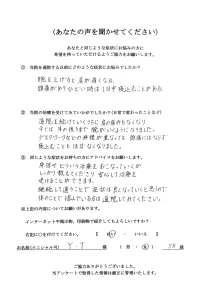 (あなたの声を聞かせてください)
あなたと同じような症状にお悩みの方に
希望を持っていただけるようご協力をお願いします。
① 当院を通院する以前にどのような症状にお悩みでしたか?
腕を上げると肩が痛くなる。
頭痛がありひどい時は1日中寝込むことがある。
② 当院の治療を受けてみていかがでしたか?(日常で変わったことなど)
通院を続けていくうちに肩の痛みもなくなり
今では耳の後ろまで腕がいくようになりました。
デスクワークなので目の疲れが重なっても頭痛にはならず
寝込むことも なくなりました。
③ 同じような症状をお持ちの方にアドバイスをお願いします。
しっかり教えてくださり安心して治療を
受けることができます。
継続して通うことで症状は良くなっていくと思うので
体のことで悩んでいる方は通院してみて下さい。
※上記の内容についてお願いがあります。
インターネットや掲示物、印刷物で紹介してもよろしいですか?
右記に○を付けてください。 【 はい ・ いいえ 】
お名前(イニシャル可) Y・T 様 ( 男 ・ 女 ) 58 歳
ご協力ありがとうございました。
当アンケートで取得した情報は厳正に管理いたします。